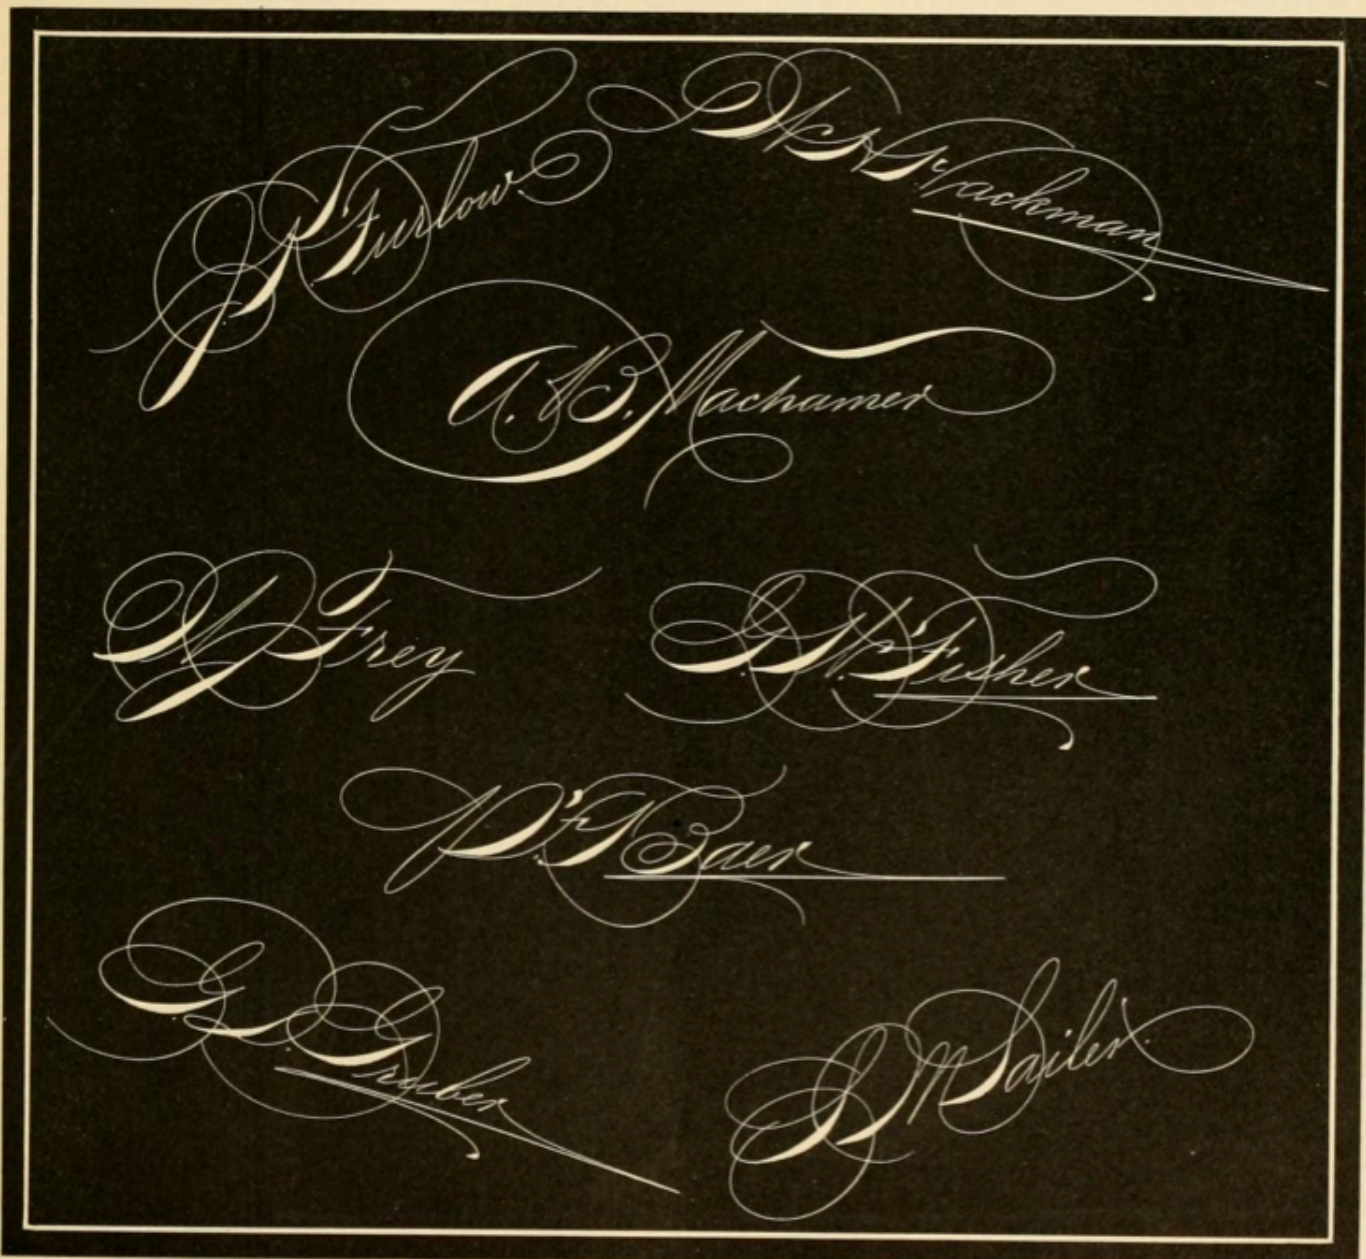 Furlow
Hackman
A. B. Machamer
Frey
G. W. Fisher
P. F. Baer
G. S. Gruber
S M Sailer